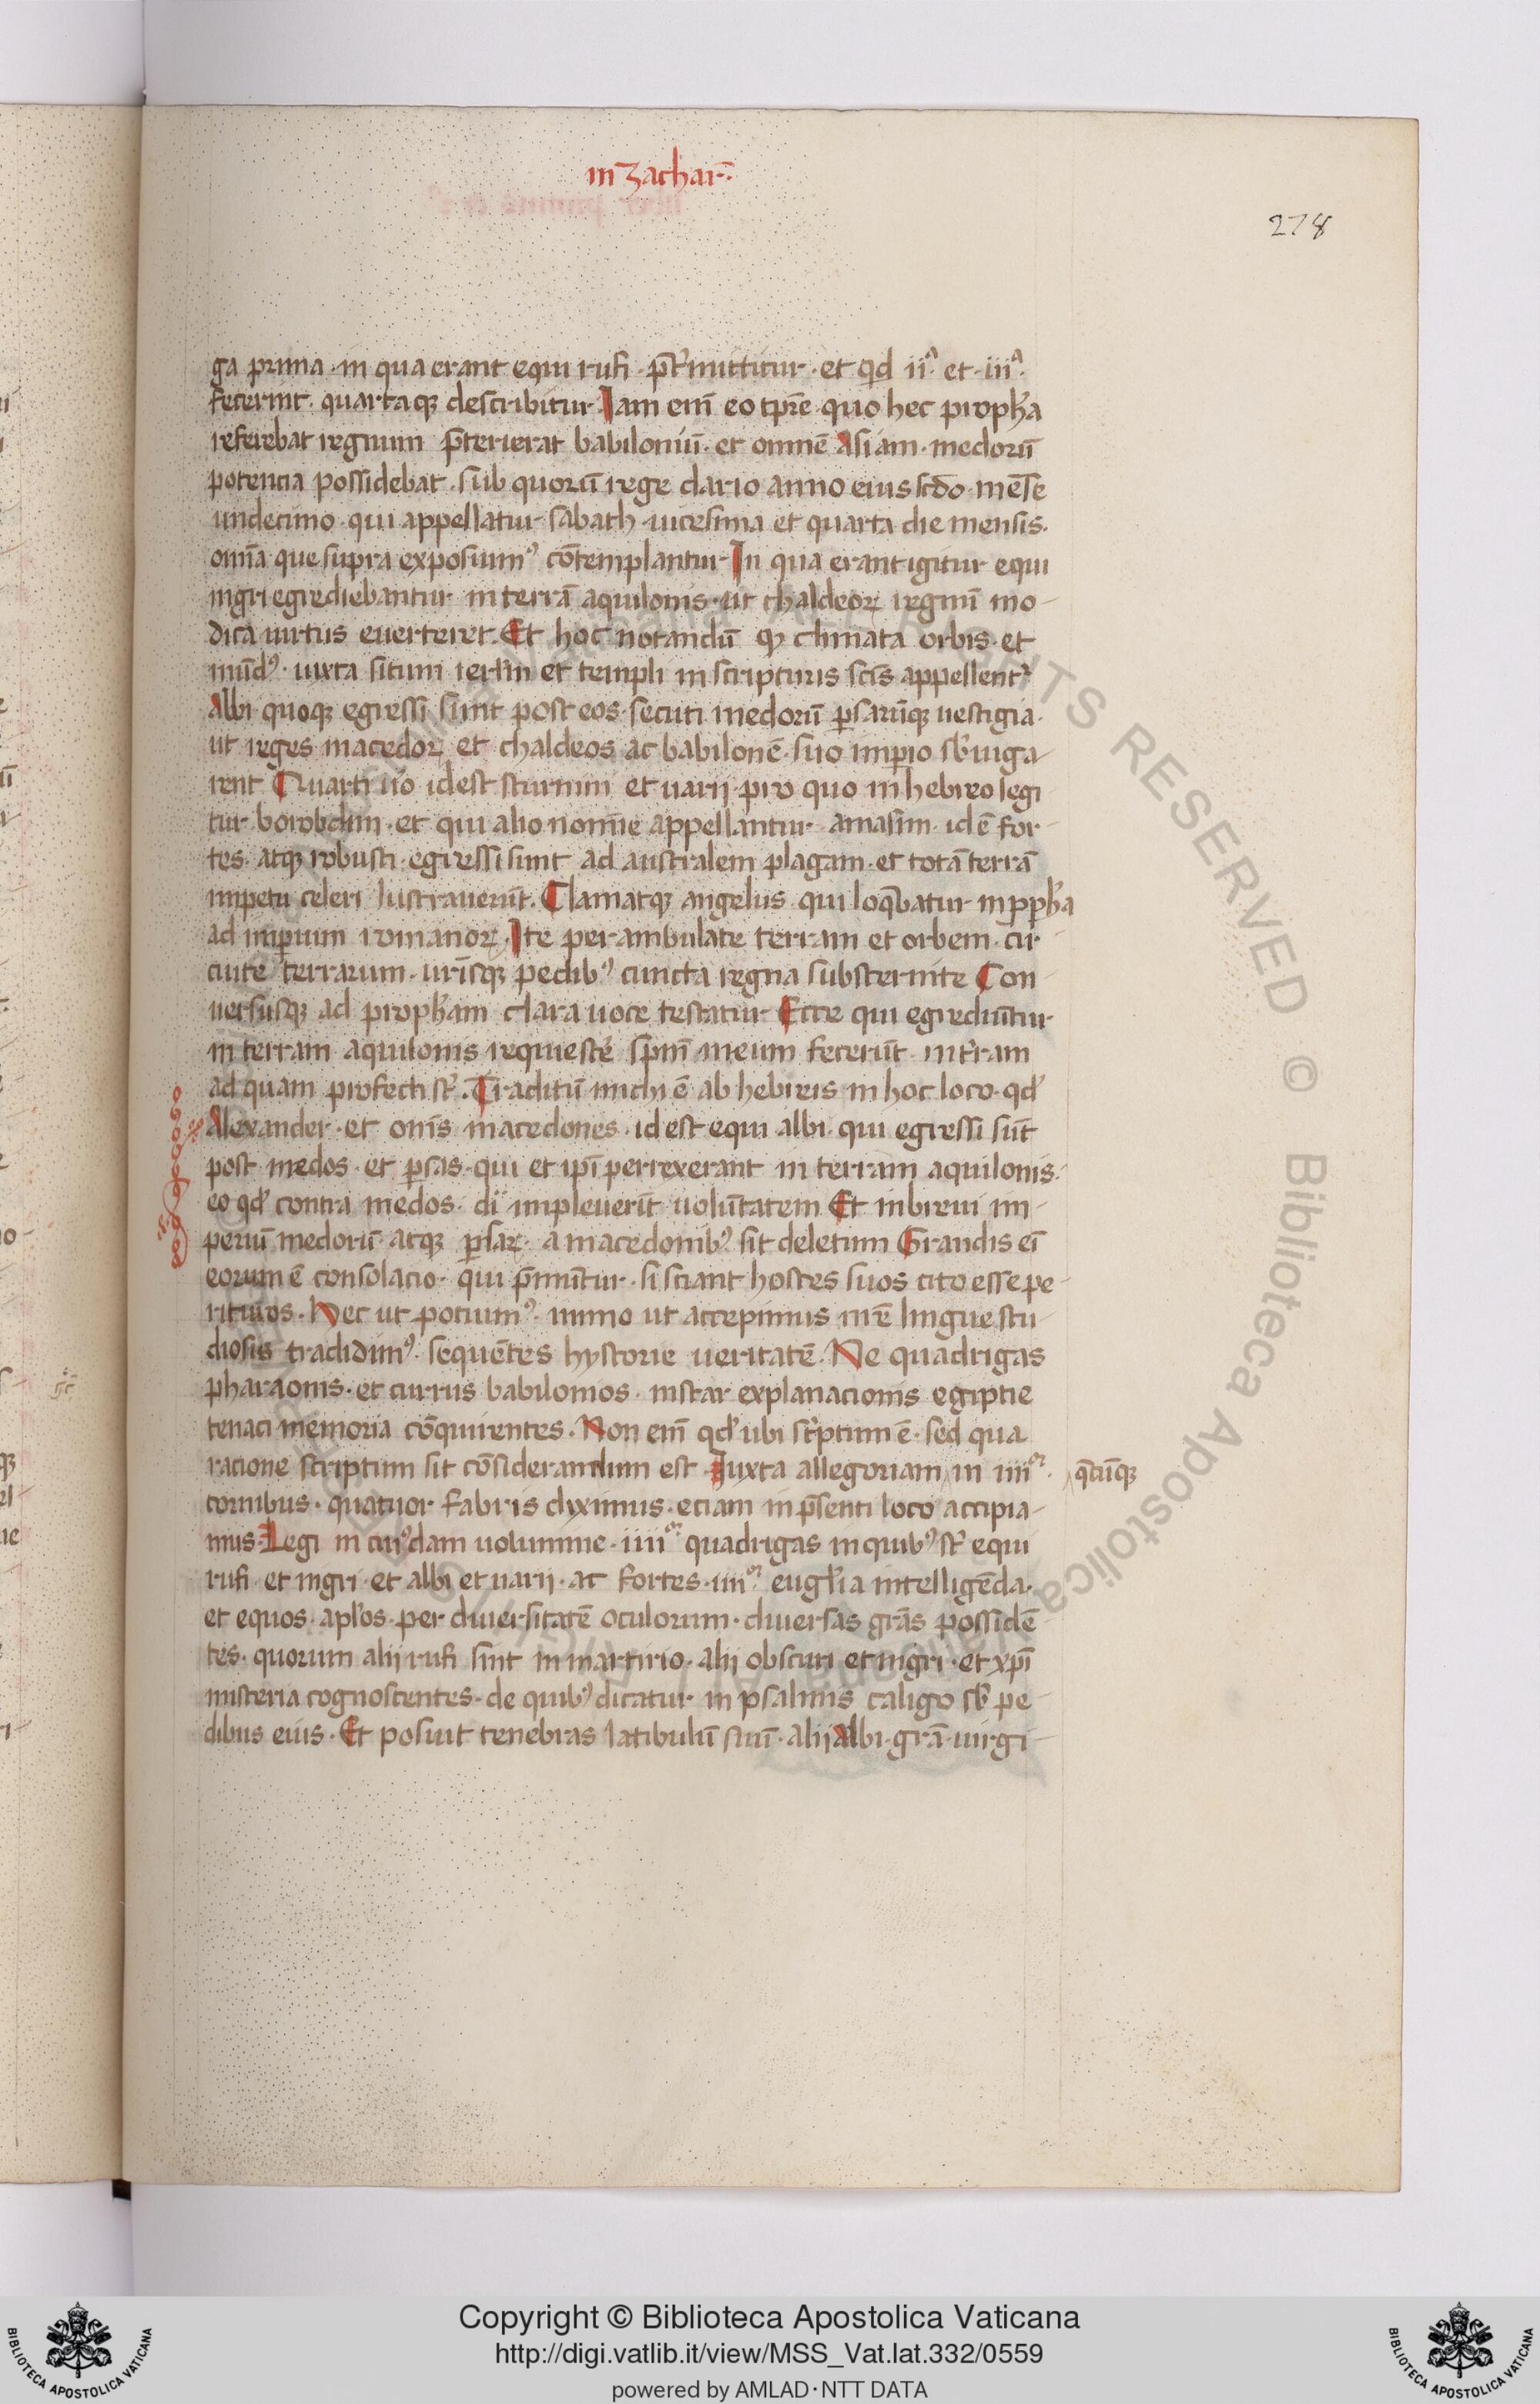 in Zachar̄.
278
ga prima · in qua erant equi rufi · p̄t̾mittitur · et qͥd iiᵃ et · iiiᵃ
fecerint · quartaqꝫ describitur Iam eni̅ eo tp̄re quo hec proph̄a
referebat regnum p̄terierat babiloniū · et omnē Asiam · medorū
potencia possidebat · sub quorū rege dario anno eius scd̄o mēse
undecimo · qui appellatur sabath · uicesima et quarta die mensis ·
omīa que supra exposuimꝰ cōtemplantur In qua erant igitur equi
nigri egrediebantur in terrā aquilonis · ut chaldeoꝝ regnū mo-
dica uirtus euerteret. Et hoc notandū ꝙ climata orbis · et
mūdꝰ · iuxta situm ierl̄m et templi in scripturis scīs appellentᷣ
Albi quoqꝫ egressi sunt post eos · secuti medorū ꝑsarūqꝫ uestigia ·
ut reges macedoꝝ et chaldeos ac babilonē · suo imꝑio sb̄iuga-
rent Quarti uͦo idest sturnini et uarij · pro quo in hebreo legi
tur · borobdim · et qui alio nomīe appellantur · amasim · id ē for-
tes · atqꝫ robusti · egressi sunt ad australem plagam · et totā terrā
impetu celeri lustrauerūt. Clamatqꝫ angelus qui loq̄batur in ꝓph̄a
ad imꝑium romanoꝝ · Ite perambulate terram et orbem · cir-
cuite terrarum · ur̄isqꝫ pedibꝰ cuncta regna substernite Con-
uersusqꝫ ad proph̄am clara uoce testatur Ecce qui egrediūtur
in terram aquilonis requiescē sp̄m meum fecerūt · in t̾ram
ad quam profecti st̄. Traditū michi ē ab hebreis in hoc loco · qd̾
Alexander · et om̄s macedones · id est equi albi · qui egressi sūt
post medos · et ꝑsas · qui et ip̄i perrexerant in terram aquilonis ·
eo qd̾ contra medos · di̅ impleuerīt uolūtatem Et in breui im-
perīu medorū · atqꝫ ꝑsaꝝ · a macedonibꝰ sit deletum Grandis ei̅
eorum ē consolacio · qui p̄muntur · si sciant hostes suos cito esse pe-
rituros · Hec ut potuimꝰ · immo ut accepimus nr̄e lingue stu-
diosis tradidimꝰ · sequētes hystorie ueritatē. Ne quadrigas
pharaonis · et currus babilonios · instar explanacionis egiptie
tenaci memoria cōquirentes. Non eni̅ qd̾ ubi sc̾ptum ē · sed qua
racione scriptum sit cōsiderandum est Iuxta allegoriam in iiiiᵒʳ · q̄cūqꝫ
cornibus · quatuor fabris diximus · eciam in p̄senti loco accipia-
mus · Legi in cuiꝰdam uolumine · iiiiᵒʳ quadrigas in quibꝰ st̄ equi
rufi · et nigri · et albi et uarij · ac fortes · iiiiᵒʳ eugl̄ia intelligēda ·
et equos · apl̄os · per diuersitatē oculorum · diuersas gr̄as possidē-
tes · quorum alij rufi sint in martirio · alij obscuri et nigri · et xp̄i
misteria cognoscentes · de quibꝰ dicatur in psalmis caligo sb̄ pe-
dibus eius · Et posuit tenebras latibulū suū · alij Albi · gr̄a uirgi-
Copyright © Biblioteca Apostolica Vaticana
http://digi.vatlib.it/view/MSS_Vat.lat.332/0559
powered by AMLAD·NTT DATA